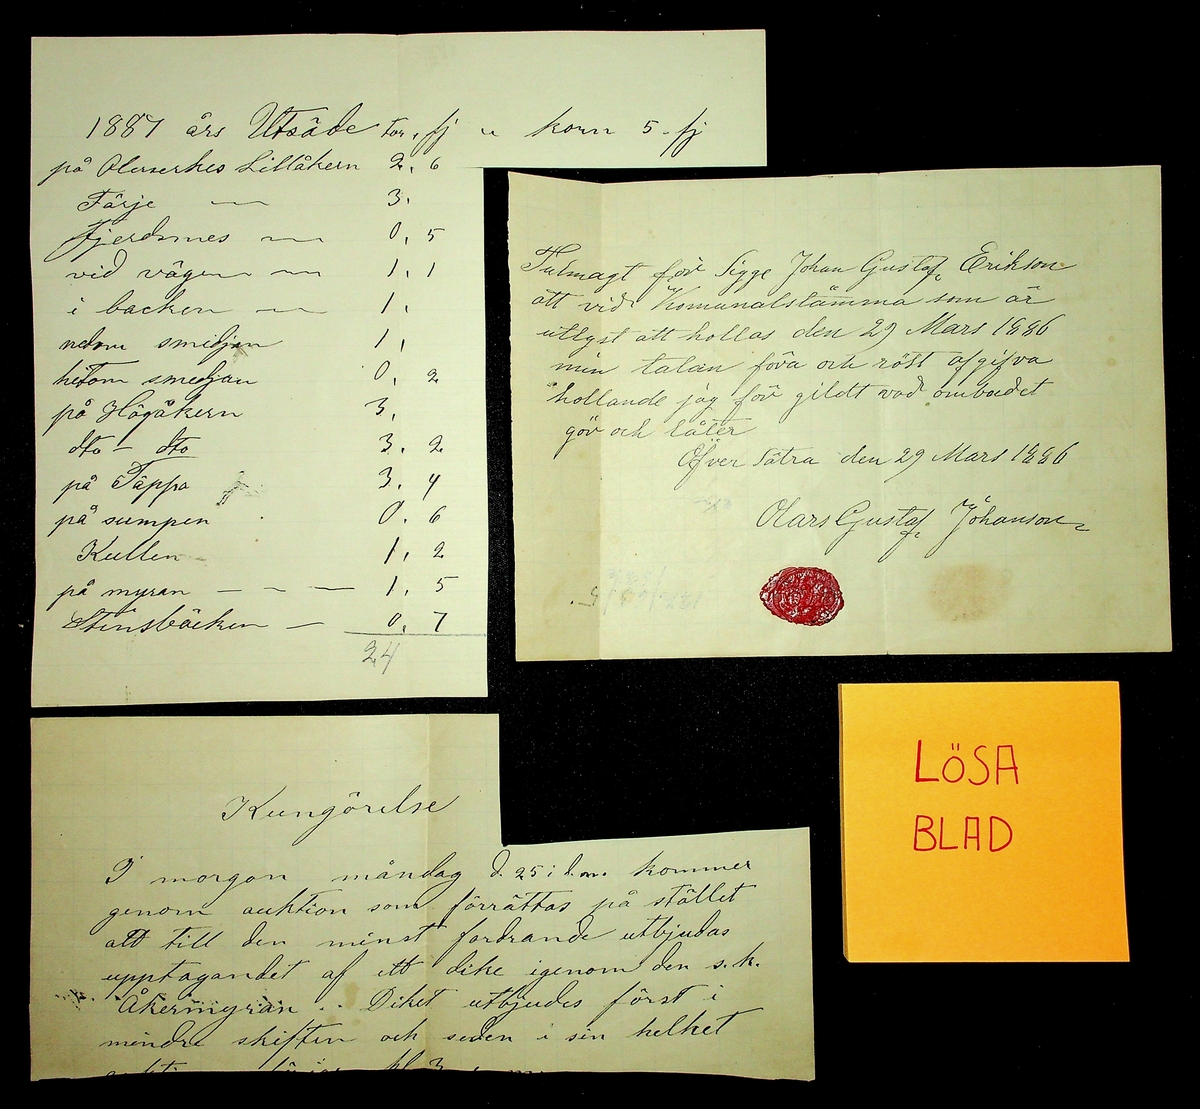 1887 års Utsäde tor, fj u korn 5 fj
på Olerserkes Lillåkern 2, 6
Färje 3,
fjerdsmes 0, 5
vid vägen 1, 1
i backen 1,
nedom smidjan 1,
hitom smedjan 0, 2
på Högåkern 3,
dto - dto 3, 2
på Täppa 3, 4
på sumpen 0, 6
Kullen 1, 2
på myran 1, 5
Stensbäcken 0, 7
24
Fulmagt för Sigge Johan Gustaf Erikson
att vid Komunalstämma som är
utlyst att hollas den 29 Mars 1886
min talan föra och röst afgifva
hollande jag för gildt vad ombudet
gör och låter
Öfver Sätra den 29 Mars 1886
Olars Gustaf Johanson
Kungörelse
I morgon måndag d. 25 i d.m. kommer
genom auktion som förrättas på stället
att till den minst fordrande utbjudas
upptagandet af ett dike igenom den s.k.
Åkermyran .. Diket utbjudes först i
mindre skiften och sedan i sin helhet
LÖSA
BLAD